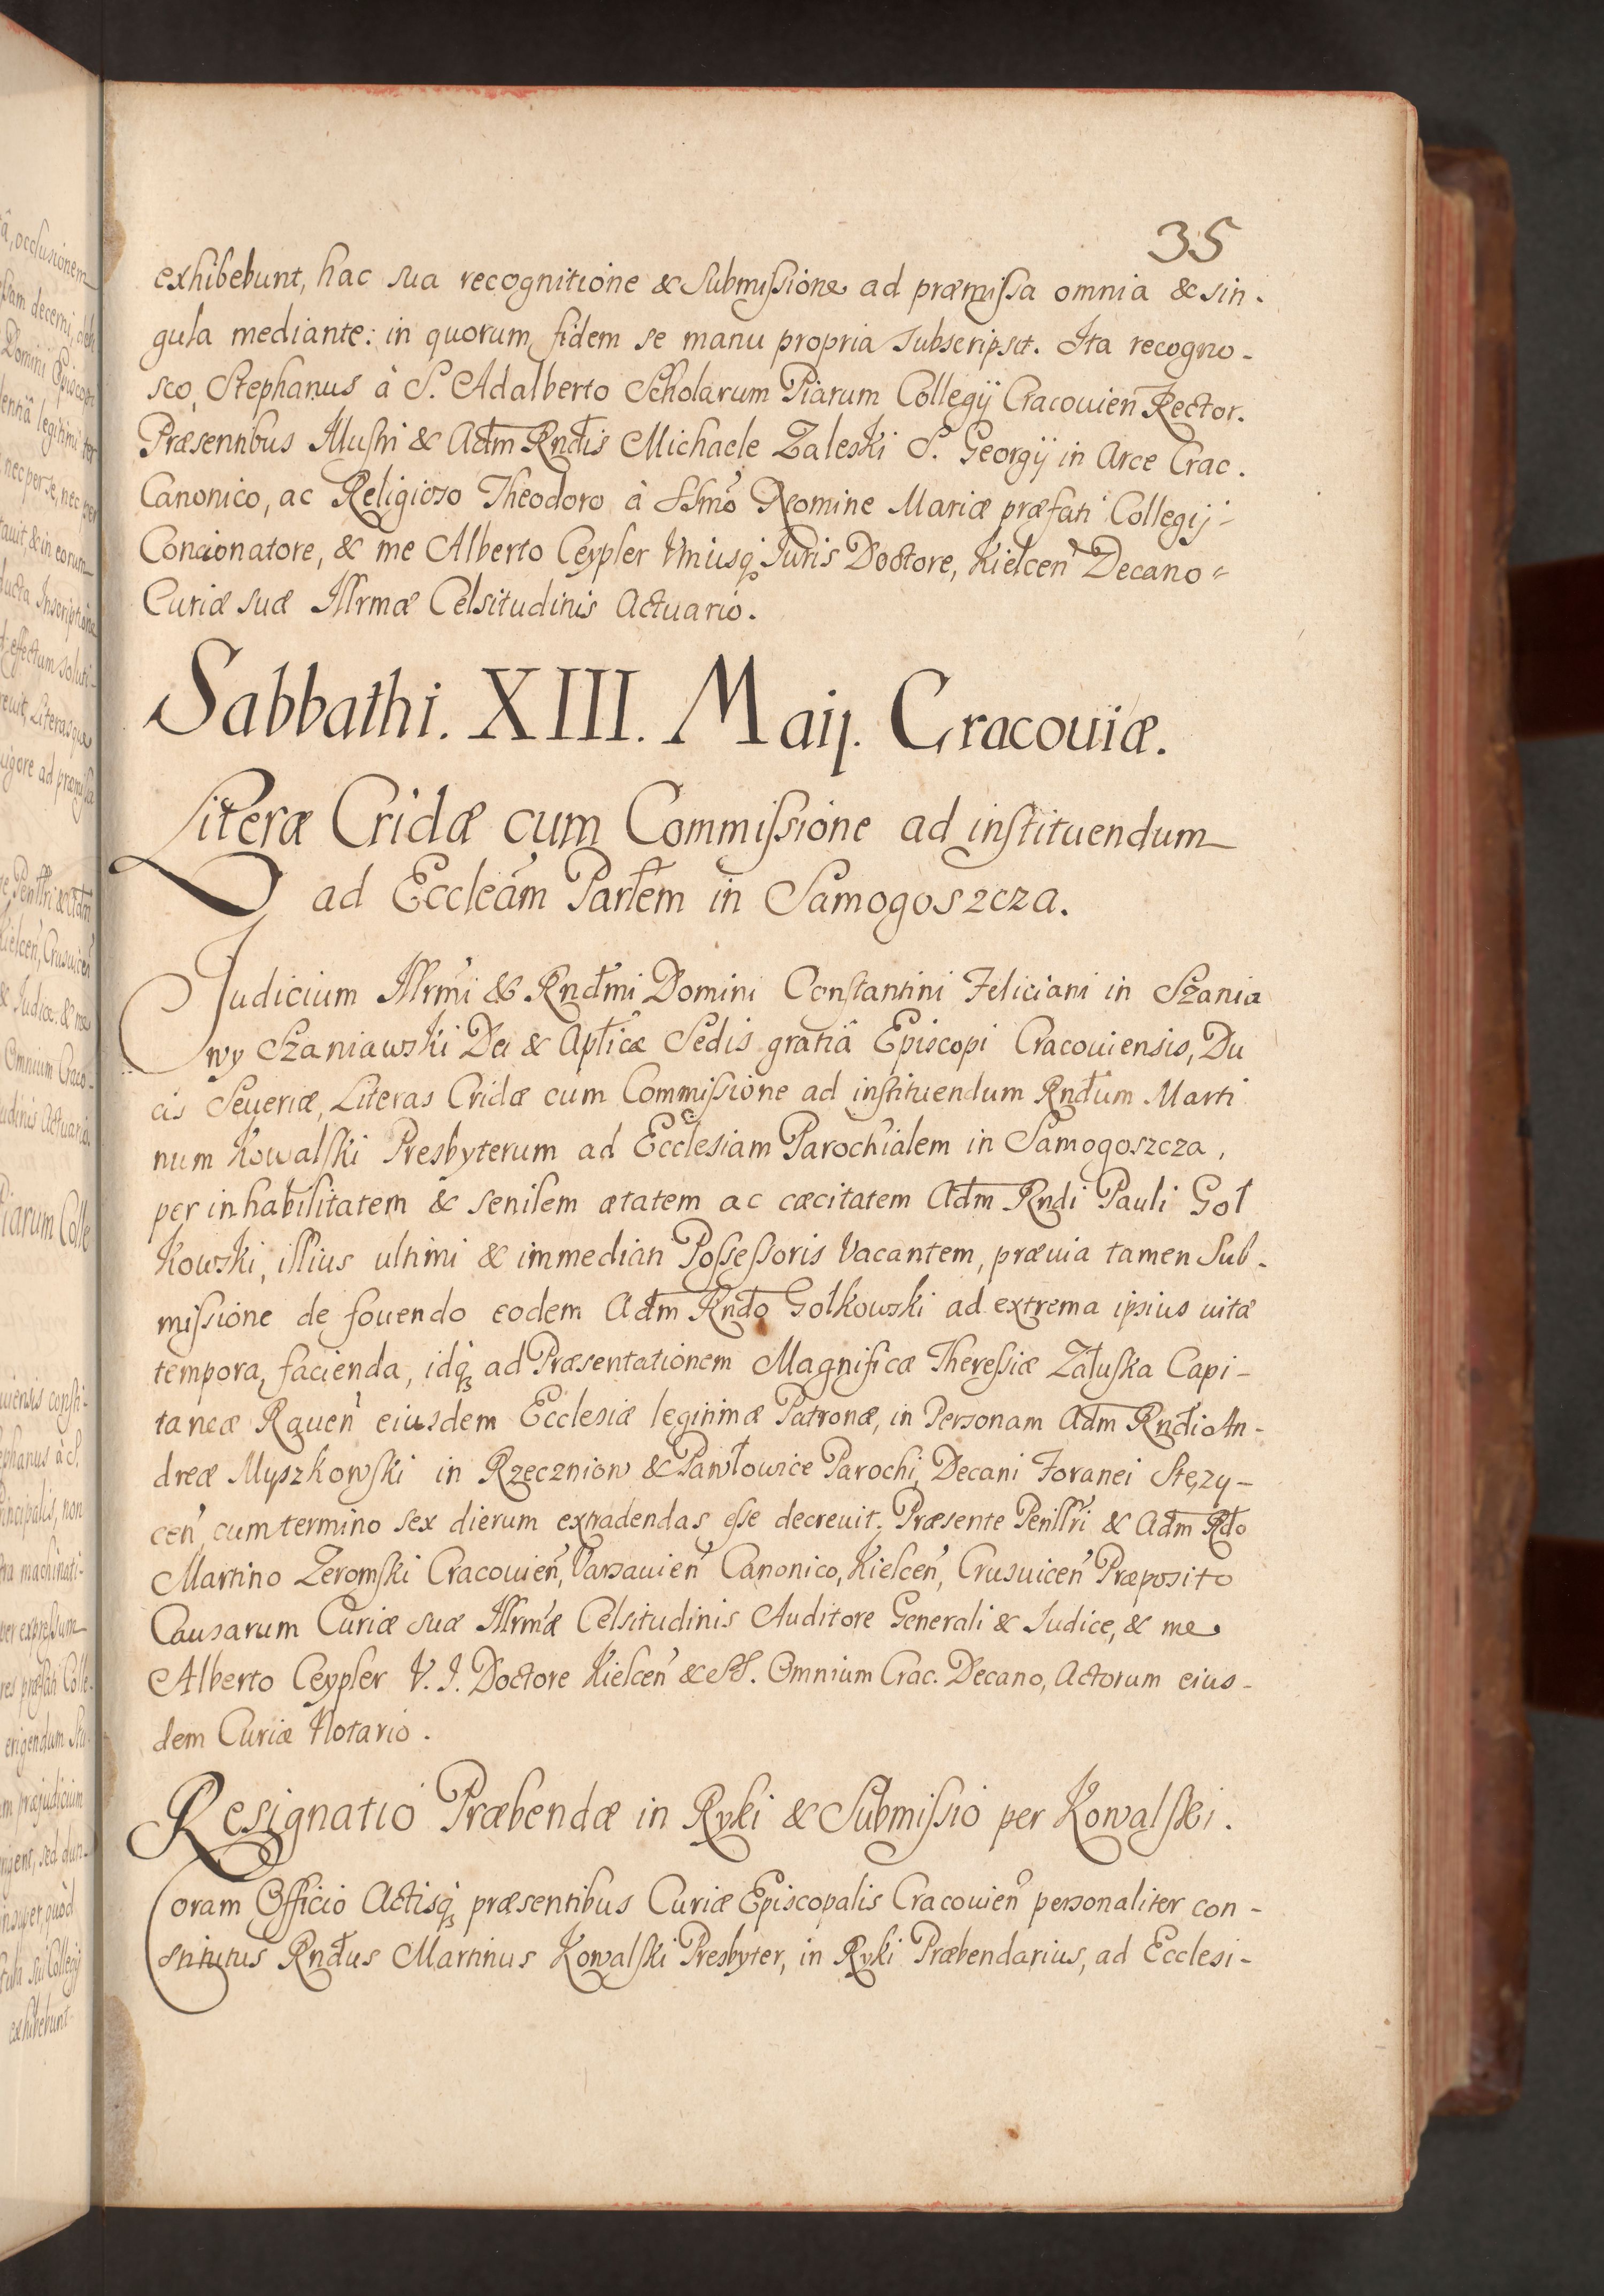 35
exhibebunt, hac sua recognitione & Submissione ad præmissa omnia & sin-
gula mediante: in quorum fidem se manu propria subscripsit. Ita recogno-
sco, Stephanus à S. Adalberto Scholarum Piarum Collegij Cracouień Rector.
Præsentibus Illustri & Adm Rndis Michaele Zaleski S. Georgij in Arce Crac.
Canonico, ac Religioso Theodoro à SSmo Nomine Mariæ præfati Collegij
Concionatore, & me Alberto Ceypler Vtriusq Iuris Doctore, Kielceń Decano
Curiæ suæ Illrmæ Celsitudinis Actuario.
Sabbathi. XIII. Maij. Cracouiæ.
Literæ Cridæ cum Commissione ad instituendum
ad Eccleam Parlem in Samogoszcza.
Judicium Illrmi & Rndmi Domini Constantini Feliciani in Szania
wy Szaniawski Dei & Aplicæ Sedis gratiâ Episcopi Cracouiensis, Du
cis Seueriæ, Literas Cridæ cum Commissione ad instituendum Rndum Marti
num Kowalski Presbyterum ad Ecclesiam Parochialem in Samogoszcza,
per inhabilitatem & senilem ætatem ac cæcitatem Adm Rndi Pauli Goł
kowski, illius ultimi & immediati Possessoris Vacantem, præuia tamen Sub-
missione de fouendo eodem Adm Rndo Gołkowski ad extrema ipsius uitæ
tempora, facienda, idq ad Præsentationem Magnificæ Theressiæ Załuska Capi-
taneæ Raueń eiusdem Ecclesiæ legitimæ Patronæ, in Personam Adm Rndi An-
dreæ Myszkowski in Rzeczniow & Pawłowice Parochi, Decani Foranei Stęzy-
ceń, cum termino sex dierum extradendas esse decreuit. Præsente Penillri & Adm Rdo
Martino Zeromski Cracouień, Varsauień Canonico, Kielceń, Crusuiceń Præposito
Causarum Curiæ suæ Illrmæ Celsitudinis Auditore Generali & Iudice, & me
Alberto Ceypler V. I. Doctore Kielceń & SS. Omnium Crac. Decano, Actorum eius-
dem Curiæ Notario.
Resignatio Præbendæ in Ryki & Submissio per Kowalski.
Coram Officio Actisq præsentibus Curiæ Episcopalis Cracouień personaliter con-
stitutus Rndus Martinus Kowalski Presbyter, in Ryki Præbendarius, ad Ecclesi-